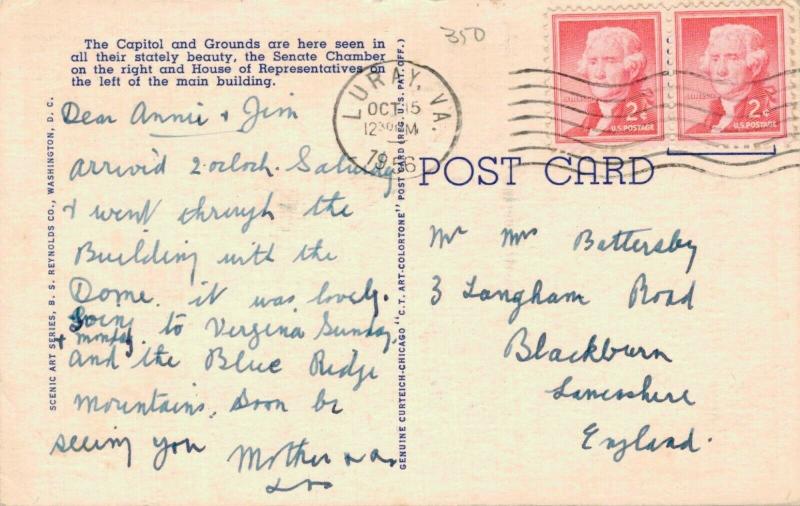 The Capitol and Grounds are here seen in
all their stately beauty, the Senate Chamber
on the right and House of Representatives on
the left of the main building.
Dear Annie + Jim
arriv'd 2 ocloch. Saturday
+ went through the
Building with the
Dome. it was lovely.
Going to Vergina Sunday
+ monday
and the Blue Ridge
mountains. Soon be
seeing you
Mother
SCENIC ART SERIES, B. S. REYNOLDS CO., WASHINGTON, D. C.
GENUINE CURTEICH-CHICAGO "C.T. ART-COLORTONE" POST CARD (REG. U.S. PAT. OFF.)
350
LURAY, VA.
OCT 15
1956
2¢
U.S. POSTAGE
2¢
U.S. POSTAGE
POST CARD
Mr Mrs Battersby
3 Langham Road
Blackburn
Lancashire
England.